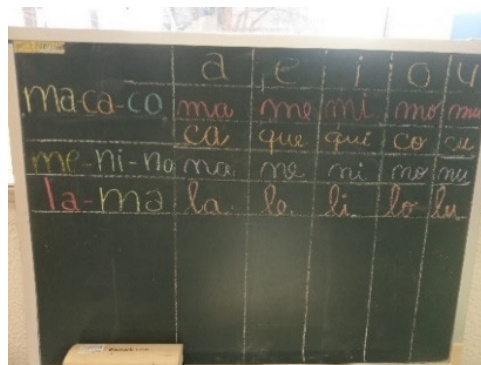 a e i o u
ma-ca-co ma me mi mo mu
ca que qui co cu
me-ni-no na ne ni no nu
la-ma la le li lo lu